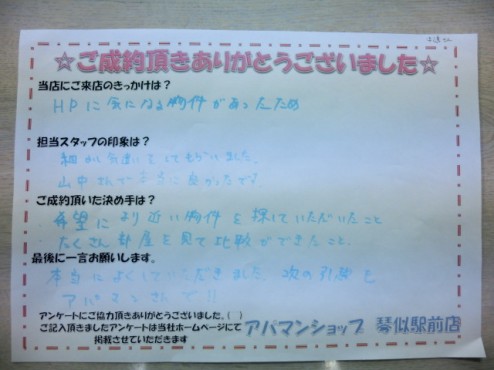 ☆ご成約頂きありがとうございました☆
当店にご来店のきっかけは？
HPに気になる物件があったため
担当スタッフの印象は？
細かい気遣いをしてもらいました。
山中さんで本当に良かったです。
ご成約頂いた決め手は？
希望により近い物件を探していただいたこと
たくさん部屋を見て比較ができたこと。
最後に一言お願いします。
本当によくしていただきました。次の引越も
アパマンさんで!!
アンケートにご協力頂きありがとうございました。(^^)
ご記入頂きましたアンケートは当社ホームページにて
掲載させていただきます
アパマンショップ 琴似駅前店